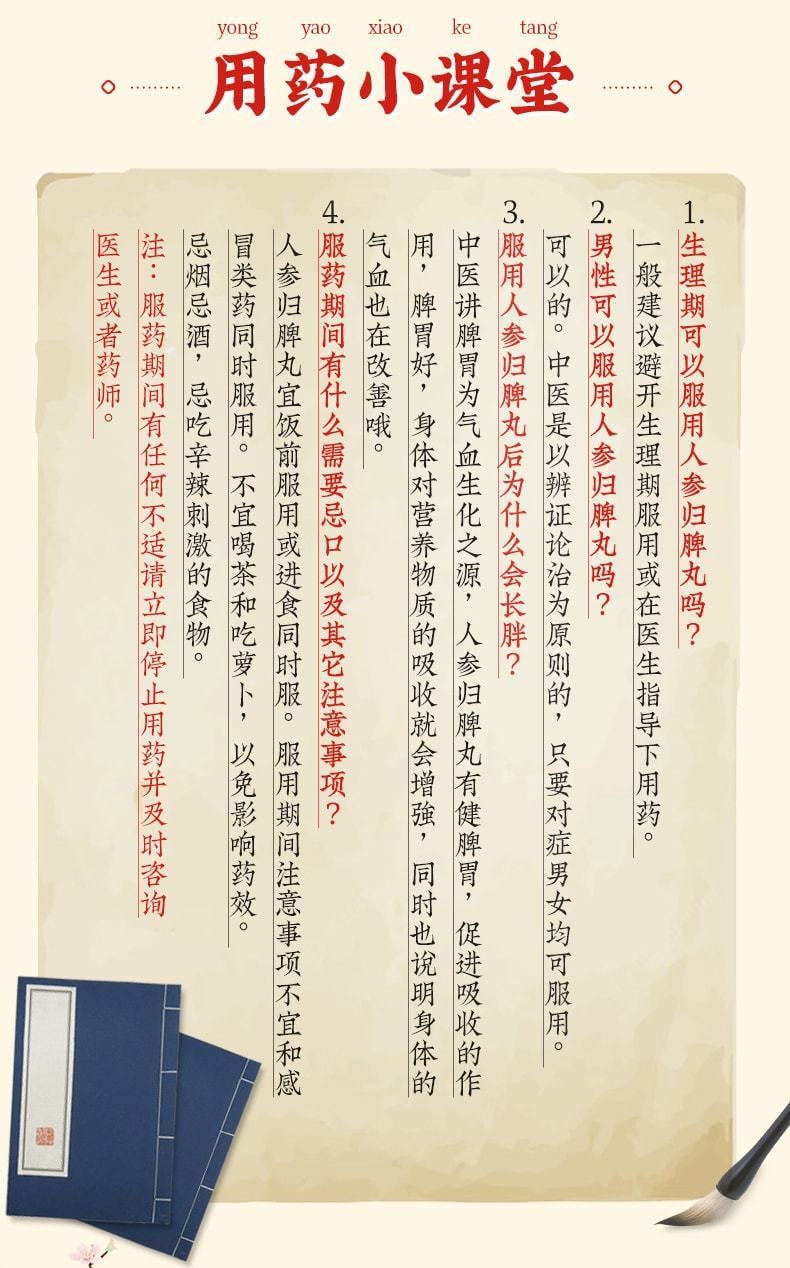 yong yao xiao ke tang
用药小课堂
1.
生理期可以服用人参归脾丸吗？
一般建议避开生理期服用或在医生指导下用药。
2.
男性可以服用人参归脾丸吗？
可以的。中医是以辨证论治为原则的，只要对症男女均可服用。
3.
服用人参归脾丸后为什么会长胖？
中医讲脾胃为气血生化之源，人参归脾丸有健脾胃，促进吸收的作
用，脾胃好，身体对营养物质的吸收就会增強，同时也说明身体的
气血也在改善哦。
4.
服药期间有什么需要忌口以及其它注意事项？
人参归脾丸宜饭前服用或进食同时服。服用期间注意事项不宜和感
冒类药同时服用。不宜喝茶和吃萝卜，以免影响药效。
忌烟忌酒，忌吃辛辣刺激的食物。
注：服药期间有任何不适请立即停止用药并及时咨询
医生或者药师。